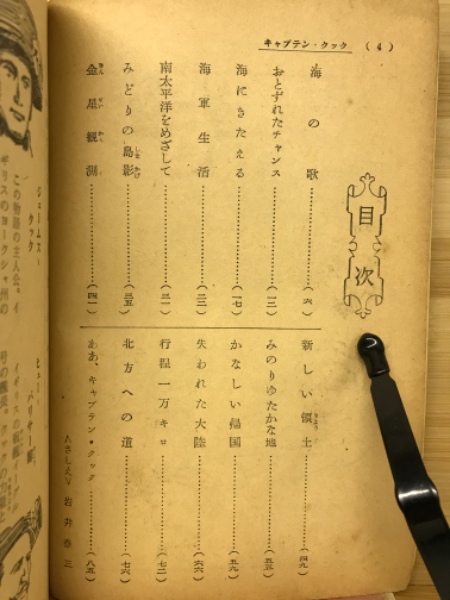 キャプテン・クック (4)
目次
海の歌……(六)
おとずれたチャンス……(一三)
海にきたえる……(一七)
海軍生活……(二三)
南太平洋をめざして……(三一)
みどりの島影……(三五)
金星観測……(四一)
新しい領土……(四九)
みのりゆたかな地……(五三)
かなしい帰国……(五九)
失われた大陸……(六六)
行程一万キロ……(七二)
北方への道……(七六)
ああ、キャプテン・クック……(八五)
さしえ 岩井泰三
ジェームス・クック
この物語の主人公。イ
ギリスのヨークシャ州の